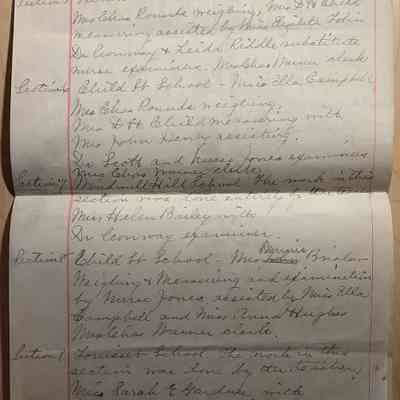 Mrs Chas Rounds weighing, Mrs D H Child
measuring assisted by Miss Tobin
Dr Conway & Leida Riddle substitute
nurse examiners. Mrs Chas Muncy clerk
Section 6 Child St School - Miss Ella Campbell
Mrs Chas Rounds weighing,
Mrs D H Child measuring with
Mrs John Henry assisting.
Dr Scott and Nurse Jones examiners
Mrs Chas Muncy clerk.
Section 7 Windmill Hill School. The work in this
section was done entirely by the
Miss Helen Bailey with
Dr Conway examiner.
Section 8 Child St School - Miss Bernice
Weighing & Measuring and examination
by Nurse Jones assisted by Miss Ella
Campbell and Miss Anna Hughes
Mrs Chas Warner clerk.
Section 9 School. The work in this
section was done by the teacher,
Miss Sarah E Gardner, with